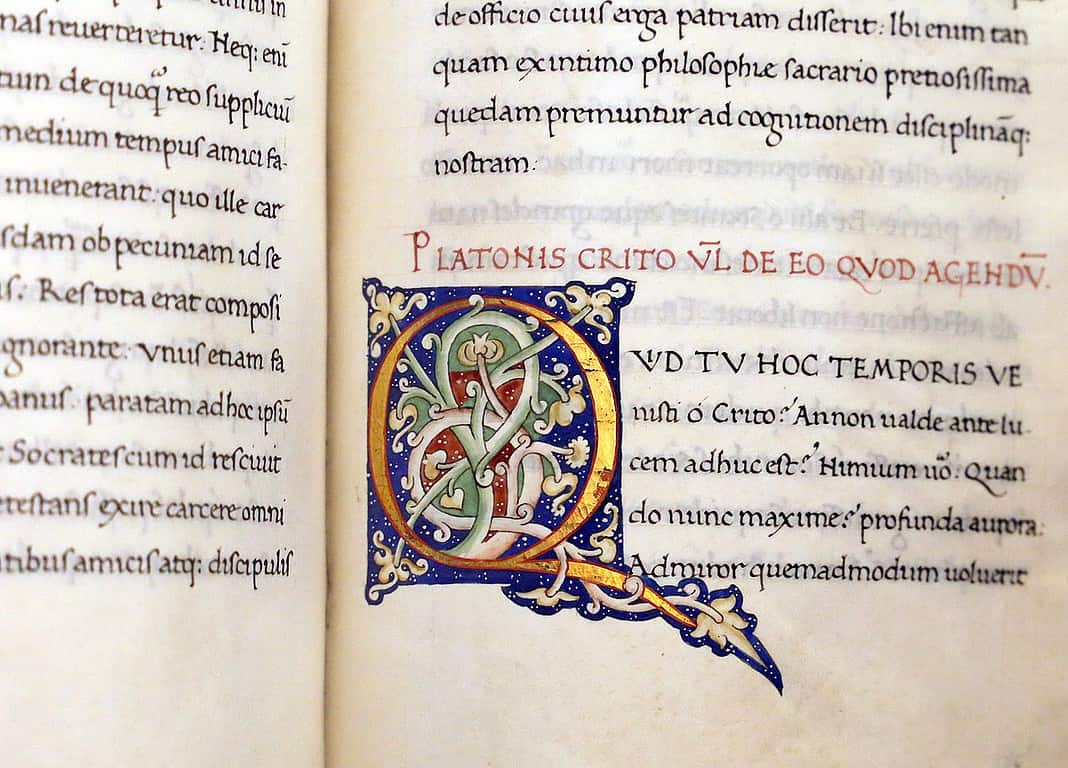 nas reuerteretur. Neq: enī
tum de quoq reo suppliciū
medium tempus amici fa-
inuenerant: quo ille car
sdam ob pecuniam id se
s: Res tota erat composi
gnorante: Vnus etiam fa
banus. paratam ad hoc ipsū
Socrates cum id resciuit
testans exire carcere omni
ntibus amicis atq: discipulis
de officio cuius erga patriam disserit: Ibi enim tan
quam ex intimo philosophie sacrario pretiosissima
quedam premuntur ad cognitionem disciplināq:
nostram.
PLATONIS CRITO VL̄ DE EO QVOD AGENDV̄.
QVVD TV HOC TEMPORIS VE
nisti ó Crito? An non ualde ante lu
cem adhuc est? Nimium uō. Quan
do nunc maxime? profunda aurora.
Admiror quemadmodum uoluerit